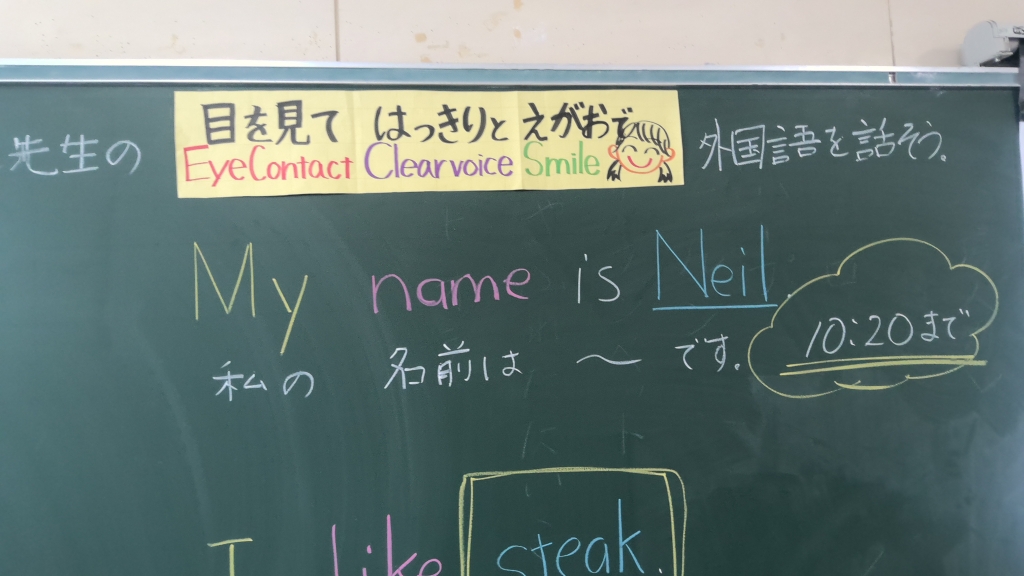 先生の 目を見て はっきりと えがおで 外国語を話そう。
EyeContact Clearvoice Smile
My name is Neil.
私の 名前は 〜 です。
10:20まで
I like steak.